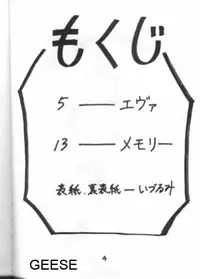 もくじ
5 ── エヴァ
13 ── メモリー
表紙.裏表紙 ─ いづみ
4
GEESE